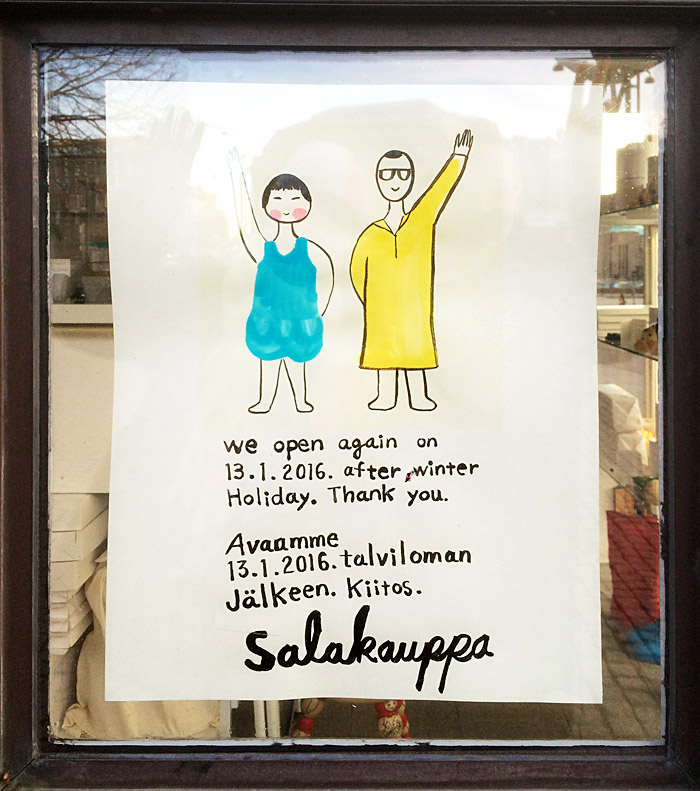 we open again on
13.1.2016. after winter
Holiday. Thank you.
Avaamme
13.1.2016. talviloman
Jälkeen. Kiitos.
Salakauppa